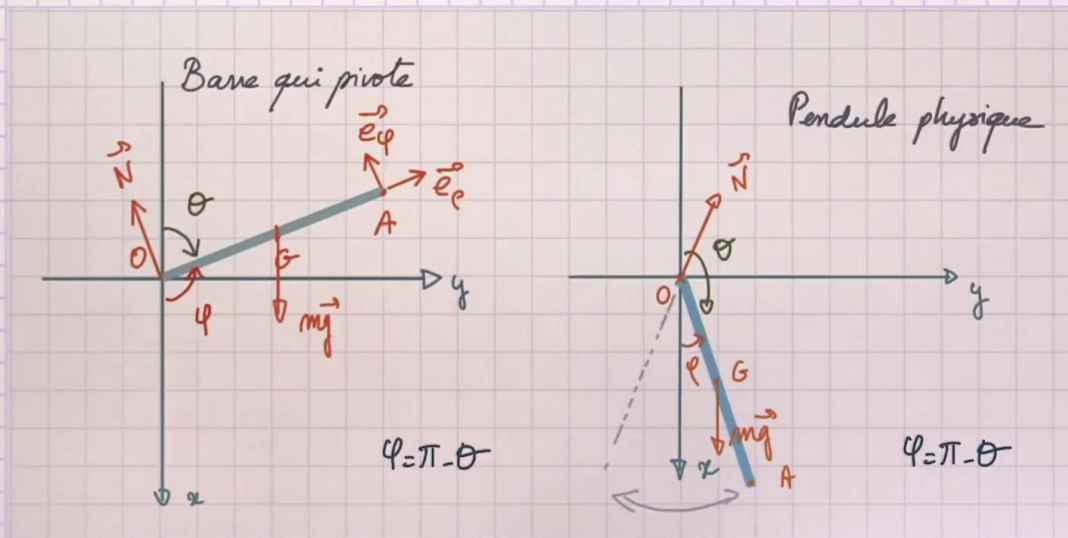 Barre qui pivote
e⃗φ
N⃗
θ
e⃗ρ
A
O
G
y
φ
mg⃗
φ=π-θ
x
Pendule physique
N⃗
θ
O
y
φ
G
mg⃗
x
A
φ=π-θ